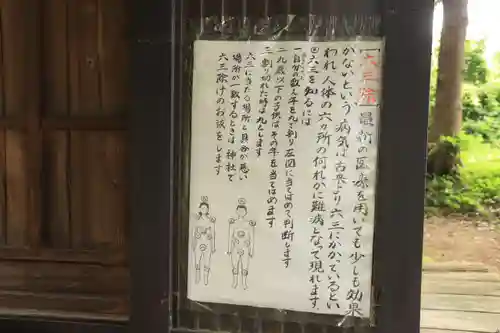 六三除 最新の医療を用いても少しも効果
かないという病気は古来より六三にかかっているとい
われ人体の六ヵ所の何れかに難病となって現れます。
◎六三を知るには
一自分の数え年を九で割り左図に当てはめて判断します
二九歳以下の子供はその年を当てはめます
三割り切れた時は九とします
六三に当たる場所と具合が悪い
場所が一致するときは神社で
六三除けのお祓をします